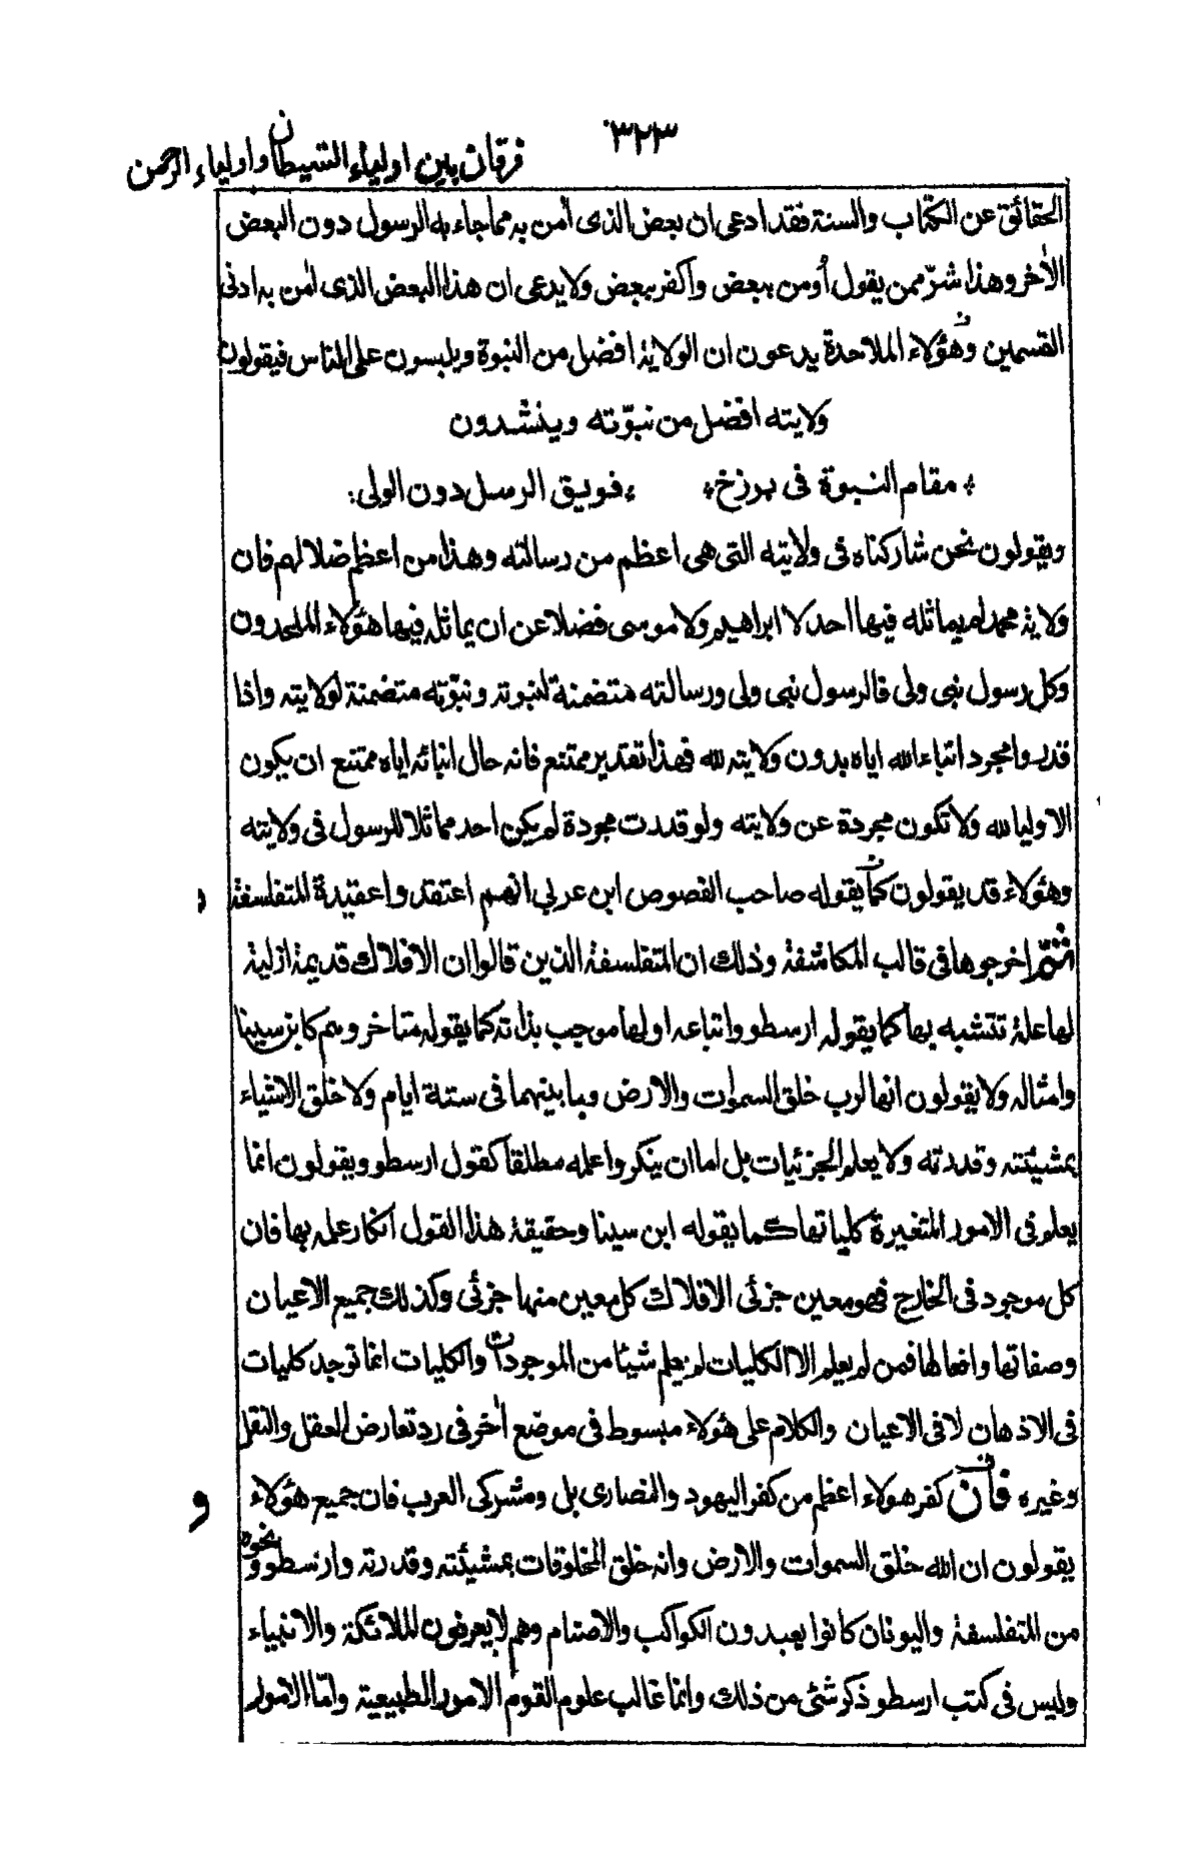 ٣٢٣
فرقان بين اولياء الشيطان واولياء الرحمن
الحقائق عن الكتاب والسنة فقد ادعى ان بعض الذى اٰمن به مما جاء به الرسول دون البعض
الاٰخر وهذا شرّ ممن يقول أومن ببعض واكفر ببعض ولا يدعى ان هذا البعض الذى اٰمن به ادنى
القسمين وهؤلاء الملاحدة يدعون ان الولاية افضل من النبوة ويلبسون على الناس فيقولون
ولايته افضل من نبوّته وينشدون
مقام النبوة فى برزخ فويق الرسل دون الولى
ويقولون نحن شاركناه فى ولايته التى هى اعظم من رسالته وهذا من اعظم ضلالهم فان
ولاية محمد لم يماثله فيها احد لا ابراهيم ولا موسى فضلا عن ان يماثله فيها هؤلاء الملحدون
وكل رسول نبى ولى فالرسول نبى ولى ورسالته متضمنة لنبوته ونبوّته متضمنة لولايته واذا
قدروا مجرد انباء الله اياه بدون ولايته لله فهذا تقدير ممتنع فانه حال انبائه اياه ممتنع ان يكون
الا وليا لله ولا تكون مجردة عن ولايته ولو قدرت مجردة لم يكن احد مماثلا للرسول فى ولايته
وهؤلاء قد يقولون كما يقوله صاحب الفصوص ابن عربي انهم اعتقدوا عقيدة المتفلسفة
ثمّ اخرجوها فى قالب المكاشفة وذلك ان المتفلسفة الذين قالوا ان الافلاك قديمة ازلية
لها علة تتشبه بها كما يقوله ارسطو واتباعه او لها موجب بذاته كما يقوله متاخروهم كابن سينا
وامثاله ولا يقولون انها لرب خلق السمٰوات والارض وما بينهما فى ستة ايام ولا خلق الاشياء
بمشيئته وقدرته ولا يعلم الجزئيات بل اما ان ينكروا علمه مطلقا كقول ارسطو ويقولون انما
يعلم فى الامور المتغيرة كلياتها كما يقوله ابن سينا وحقيقة هذا القول انكار علمه بها فان
كل موجود فى الخارج فهو معين جزئى الافلاك كل معين منها جزئى وكذلك جميع الاعيان
وصفاتها وافعالها فمن لم يعلم الا الكليات لم يعلم شيئا من الموجودات والكليات انما توجد كليات
فى الاذهان لا فى الاعيان والكلام على هؤلاء مبسوط فى موضع اٰخر فى رد تعارض العقل والنقل
وغيره فان كفر هولاء اعظم من كفر اليهود والنصارى بل ومشركى العرب فان جميع هؤلاء
يقولون ان الله خلق السموات والارض وانه خلق المخلوقات بمشيئته وقدرته وارسطو ونحوه
من المتفلسفة واليونان كانوا يعبدون الكواكب والاصنام وهم لا يعرفون الملائكة والانبياء
وليس فى كتب ارسطو ذكر شئ من ذلك وانما غالب علوم القوم الامور الطبيعية وامّا الامور